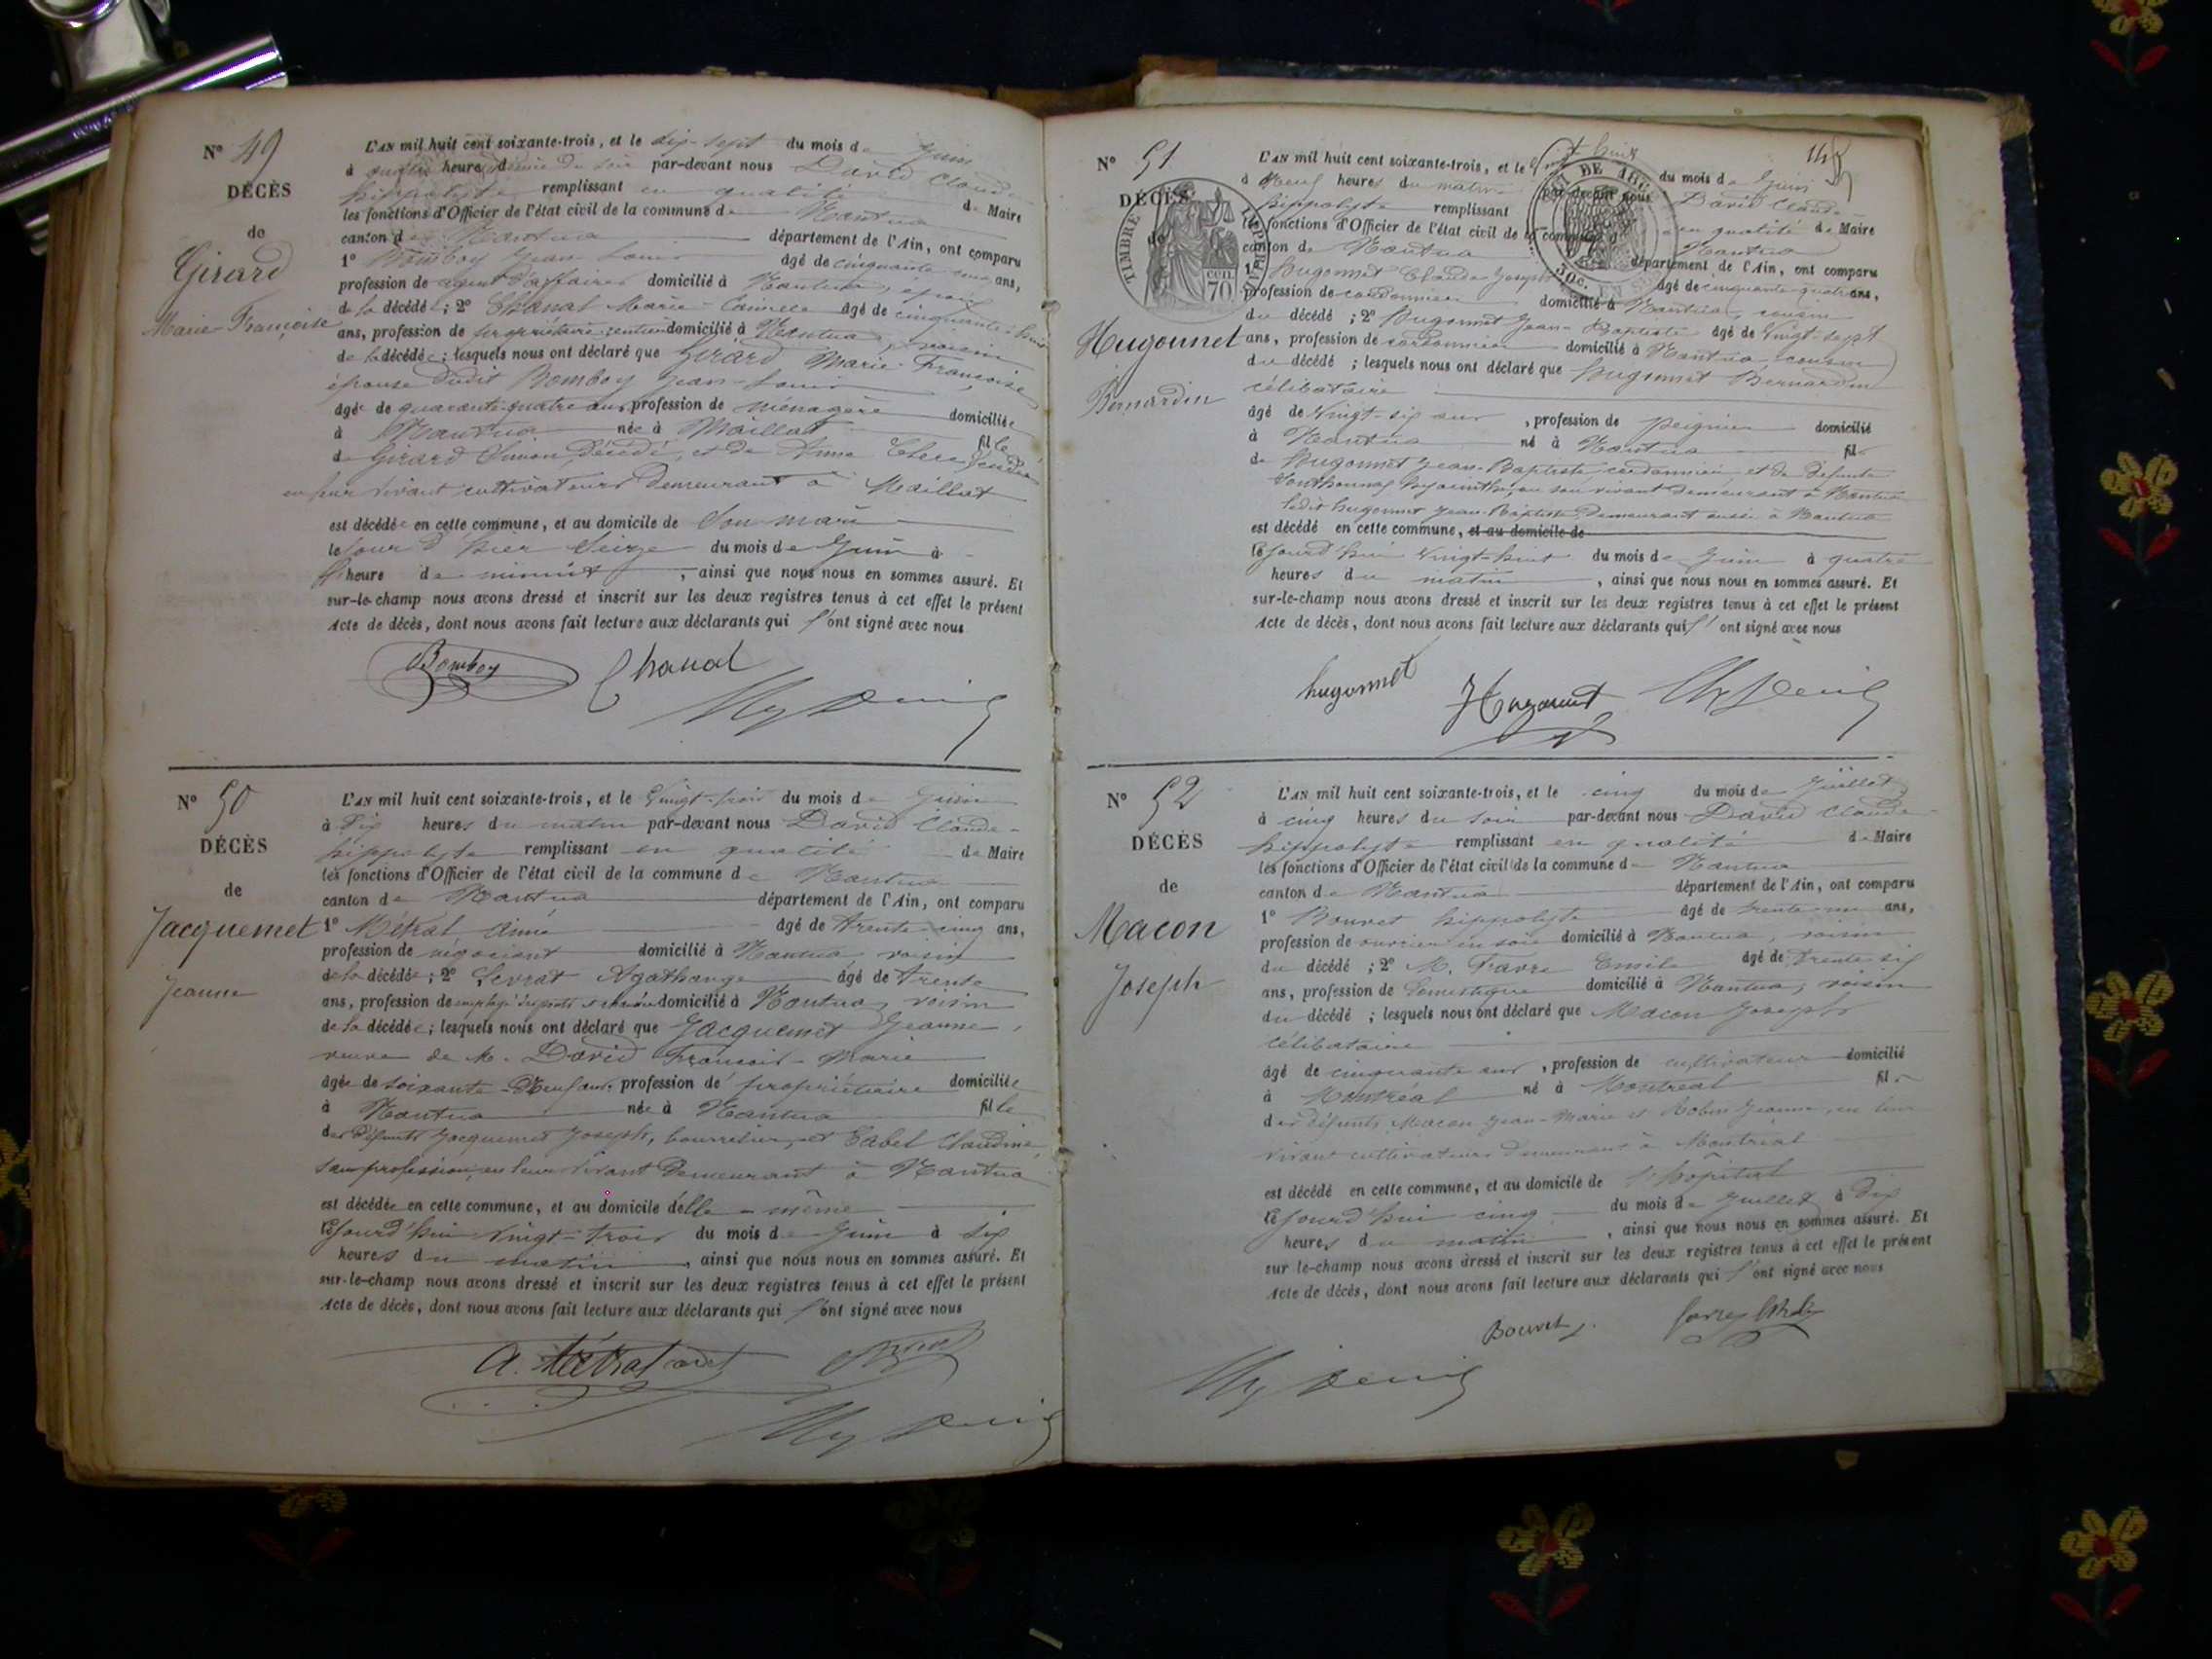 Nº 49
DÉCÈS
de
Girard
Marie Françoise
L'AN mil huit cent soixante-trois, et le dix-sept du mois de Juin
à heure du soir par-devant nous David Claude
hippolyte remplissant en qualité de Maire
les fonctions d'Officier de l'état civil de la commune de Nantua
canton de Nantua département de l'Ain, ont comparu
1º Bomboy Jean-Louis âgé de cinquante ans,
profession de agent d'affaires domicilié à Nantua, époux
de la décédée; 2º Chanal Marie-Camille âgé de cinquante-
ans, profession de propriétaire-rentier domicilié à Nantua, voisin
de la décédée; lesquels nous ont déclaré que Girard Marie Françoise
épouse dudit Bomboy Jean-Louis
âgée de quarante-quatre ans, profession de ménagère domiciliée
à Nantua née à Maillat fille
de Girard Simon, décédé, et de Anne Clerc
en leur vivant cultivateurs demeurant à Maillat
est décédée en cette commune, et au domicile de son mari
le jour d'hier seize du mois de Juin à
heure de minuit, ainsi que nous nous en sommes assuré. Et
sur-le-champ nous avons dressé et inscrit sur les deux registres tenus à cet effet le présent
Acte de décès, dont nous avons fait lecture aux déclarants qui l'ont signé avec nous
Bomboy Chanal
Nº 50
DÉCÈS
de
Jacquemet
Jeanne
L'AN mil huit cent soixante-trois, et le vingt-trois du mois de Juin
à dix heures du matin par-devant nous David Claude-
hippolyte remplissant en qualité de Maire
les fonctions d'Officier de l'état civil de la commune de Nantua
canton de Nantua département de l'Ain, ont comparu
1º Métral Aimé âgé de trente-cinq ans,
profession de négociant domicilié à Nantua, voisin
de la décédée; 2º Levrat Agathange âgé de trente
ans, profession de employé des ponts et domicilié à Nantua, voisin
de la décédée; lesquels nous ont déclaré que Jacquemet Jeanne,
veuve de M. David François-Marie
âgée de soixante-neuf ans, profession de propriétaire domiciliée
à Nantua née à Nantua fille
des défunts Jacquemet Joseph, bourrelier, et Claudine
sans profession, en leur vivant demeurant à Nantua
est décédée en cette commune, et au domicile d'elle-même
cejourd'hui vingt-trois du mois de Juin à six
heures du matin, ainsi que nous nous en sommes assuré. Et
sur-le-champ nous avons dressé et inscrit sur les deux registres tenus à cet effet le présent
Acte de décès, dont nous avons fait lecture aux déclarants qui l'ont signé avec nous
A. Métral
Nº 51
DÉCÈS
de
Hugonnet
Bernardin
TIMBRE IMPÉRIAL
70 cen
L'AN mil huit cent soixante-trois, et le vingt-huit du mois de Juin
à neuf heures du matin par-devant nous David Claude
hippolyte remplissant en qualité de Maire
les fonctions d'Officier de l'état civil de la commune de Nantua
canton de Nantua département de l'Ain, ont comparu
1º Hugonnet Claude Joseph âgé de cinquante-quatre ans,
profession de cordonnier domicilié à Nantua, cousin
du décédé; 2º Hugonnet Jean-Baptiste âgé de vingt-sept
ans, profession de cordonnier domicilié à Nantua, cousin
du décédé; lesquels nous ont déclaré que Hugonnet Bernardin
célibataire
âgé de vingt-six ans, profession de peignier domicilié
à Nantua né à Nantua fils
de Hugonnet Jean-Baptiste, cordonnier, et de défunte
Hyacinthe, en son vivant demeurant à Nantua
ledit Hugonnet Jean-Baptiste demeurant aussi à Nantua
est décédé en cette commune, et au domicile de
cejourd'hui vingt-huit du mois de Juin à quatre
heures du matin, ainsi que nous nous en sommes assuré. Et
sur-le-champ nous avons dressé et inscrit sur les deux registres tenus à cet effet le présent
Acte de décès, dont nous avons fait lecture aux déclarants qui l'ont signé avec nous
hugonnet Hugonnet
Nº 52
DÉCÈS
de
Macon
Joseph
L'AN mil huit cent soixante-trois, et le cinq du mois de Juillet
à cinq heures du soir par-devant nous David Claude-
hippolyte remplissant en qualité de Maire
les fonctions d'Officier de l'état civil de la commune de Nantua
canton de Nantua département de l'Ain, ont comparu
1º Bouvet hippolyte âgé de trente-un ans,
profession de ouvrier en soie domicilié à Nantua, voisin
du décédé; 2º M. Favre Emile âgé de trente-six
ans, profession de domestique domicilié à Nantua, voisin
du décédé; lesquels nous ont déclaré que Macon Joseph
célibataire
âgé de cinquante ans, profession de cultivateur domicilié
à Montréal né à Montréal fils
des défunts Macon Jean-Marie et Robin Jeanne, en leur
vivant cultivateurs demeurant à Montréal
est décédé en cette commune, et au domicile de l'hôpital
cejourd'hui cinq du mois de Juillet à dix
heures du matin, ainsi que nous nous en sommes assuré. Et
sur le-champ nous avons dressé et inscrit sur les deux registres tenus à cet effet le présent
Acte de décès, dont nous avons fait lecture aux déclarants qui l'ont signé avec nous
Bouvet